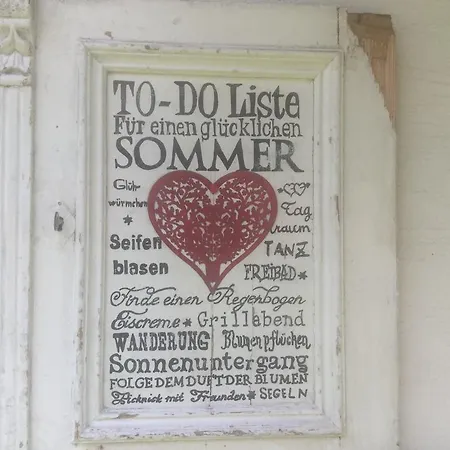 TO-DO Liste
Für einen glücklichen
SOMMER
Glüh-
würmchen
Tag
traum
Seifen
blasen
TANZ
FREIBAD
Finde einen Regenbogen
Eiscreme * Grillabend
WANDERUNG Blumen pflücken
Sonnenuntergang
FOLGE DEM DUFT DER BLUMEN
Picknick mit Freunden * SEGELN